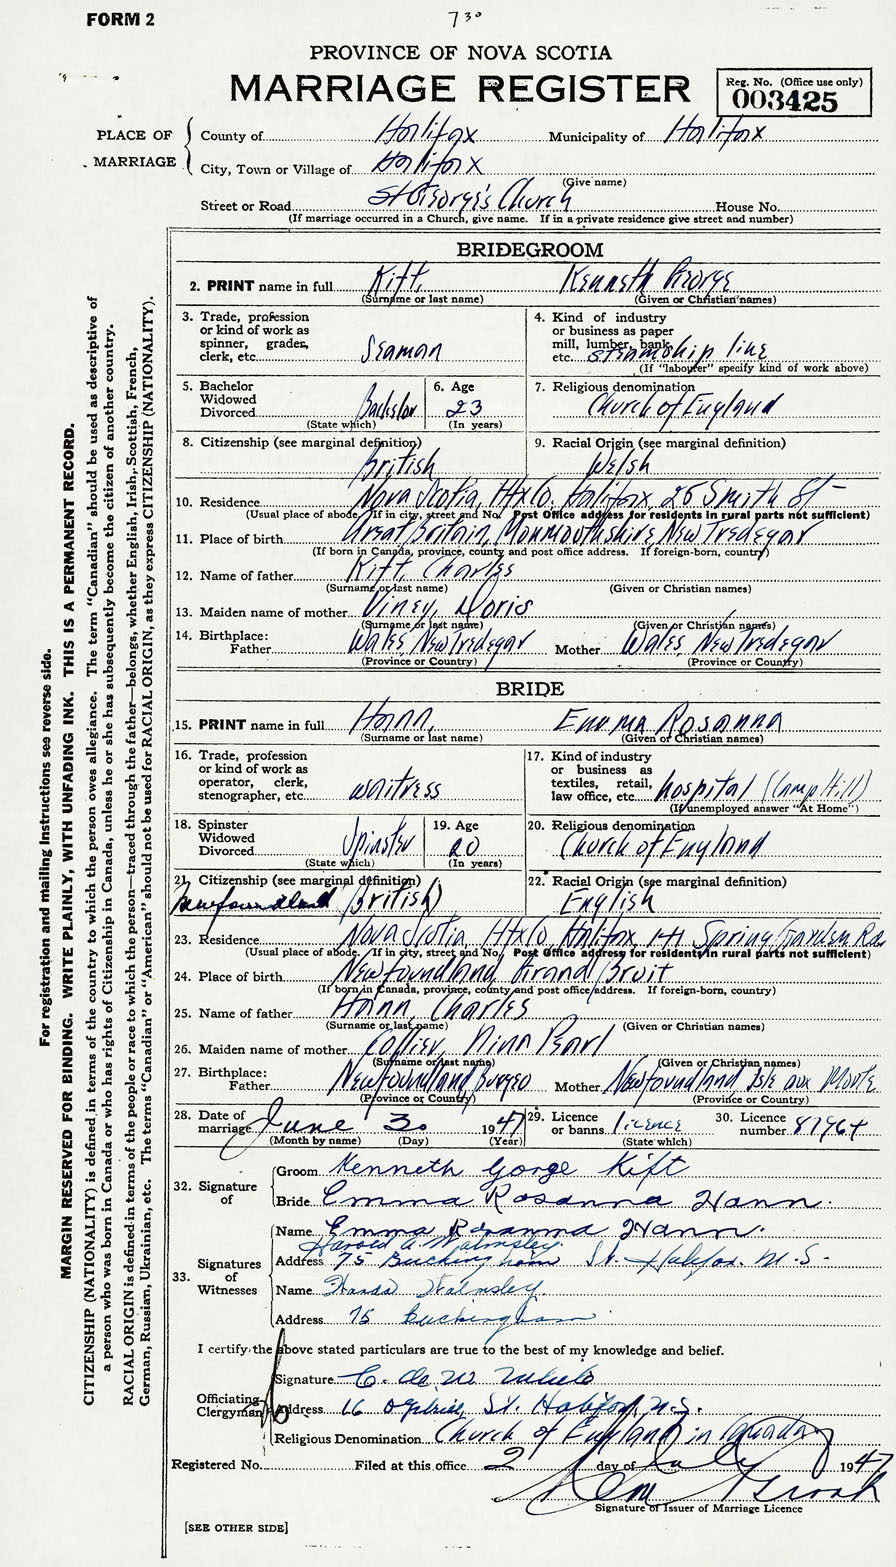 FORM 2
7 30
PROVINCE OF NOVA SCOTIA
MARRIAGE REGISTER
Reg. No. (Office use only)
003425
PLACE OF MARRIAGE
County of Halifax Municipality of Halifax
City, Town or Village of Halifax
(Give name)
Street or Road St George's Church House No.
(If marriage occurred in a Church, give name. If in a private residence give street and number)
BRIDEGROOM
2. PRINT name in full Kift, Kenneth George
(Surname or last name) (Given or Christian names)
3. Trade, profession or kind of work as spinner, grades, clerk, etc. Seaman
4. Kind of industry or business as paper mill, lumber, bank, etc. steamship line
(If "labourer" specify kind of work above)
5. Bachelor Widowed Divorced Bachelor
(State which)
6. Age 23
(In years)
7. Religious denomination
Church of England
8. Citizenship (see marginal definition)
British
9. Racial Origin (see marginal definition)
Welsh
10. Residence Nova Scotia, Hfx Co. Halifax, 25 Smith St
(Usual place of abode. If in city, street and No. Post Office address for residents in rural parts not sufficient)
11. Place of birth Great Britain, Monmouthshire, New Tredegar
(If born in Canada, province, county and post office address. If foreign-born, country)
12. Name of father Kift, Charles
(Surname or last name) (Given or Christian names)
13. Maiden name of mother Viney, Doris
(Surname or last name) (Given or Christian names)
14. Birthplace: Father Wales New Tredegar Mother Wales, New Tredegar
(Province or Country) (Province or Country)
BRIDE
15. PRINT name in full Hann, Emma Rosanna
(Surname or last name) (Given or Christian names)
16. Trade, profession or kind of work as operator, clerk, stenographer, etc. waitress
17. Kind of industry or business as textiles, retail, law office, etc. hospital (Camp Hill)
(If unemployed answer "At Home")
18. Spinster Widowed Divorced Spinster
(State which)
19. Age 20
(In years)
20. Religious denomination
Church of England
21. Citizenship (see marginal definition)
Newfoundland (British)
22. Racial Origin (see marginal definition)
English
23. Residence Nova Scotia, Hfx Co Halifax 141 Spring Garden Rd
(Usual place of abode. If in city, street and No. Post Office address for residents in rural parts not sufficient)
24. Place of birth Newfoundland, Grand Bruit
(If born in Canada, province, county and post office address. If foreign-born, country)
25. Name of father Hann, Charles
(Surname or last name) (Given or Christian names)
26. Maiden name of mother Collier, Nina Pearl
(Surname or last name) (Given or Christian names)
27. Birthplace: Father Newfoundland, Burgeo Mother Newfoundland Isle aux Morte
(Province or Country) (Province or Country)
28. Date of marriage June 30 1947
(Month by name) (Day) (Year)
29. Licence or banns licence
(State which)
30. Licence number 81964
32. Signature of
Groom Kenneth Gorge Kift
Bride Emma Rosanna Hann.
33. Signatures of Witnesses
Name Emma Rosanna Hann.
Harold A. Walmsley.
Address 75 Buckingham St. Halifax. N.S.
Name Walmsley.
Address 75 Buckingham
I certify the above stated particulars are true to the best of my knowledge and belief.
Officiating Clergyman
Signature C. de W.
Address 16 St. Halifax, N.S.
Religious Denomination Church of England in Canada
Registered No. Filed at this office 2 day of July 1947
Signature of Issuer of Marriage Licence
[SEE OTHER SIDE]
For registration and mailing instructions see reverse side.
MARGIN RESERVED FOR BINDING. WRITE PLAINLY, WITH UNFADING INK. THIS IS A PERMANENT RECORD.
CITIZENSHIP (NATIONALITY) is defined in terms of the country to which the person owes allegiance. The term "Canadian" should be used as descriptive of
a person who was born in Canada or who has rights of Citizenship in Canada, unless he or she has subsequently become the citizen of another country.
RACIAL ORIGIN is defined in terms of the people or race to which the person—traced through the father—belongs, whether English, Irish, Scottish, French,
German, Russian, Ukrainian, etc. The terms "Canadian" or "American" should not be used for RACIAL ORIGIN, as they express CITIZENSHIP (NATIONALITY).